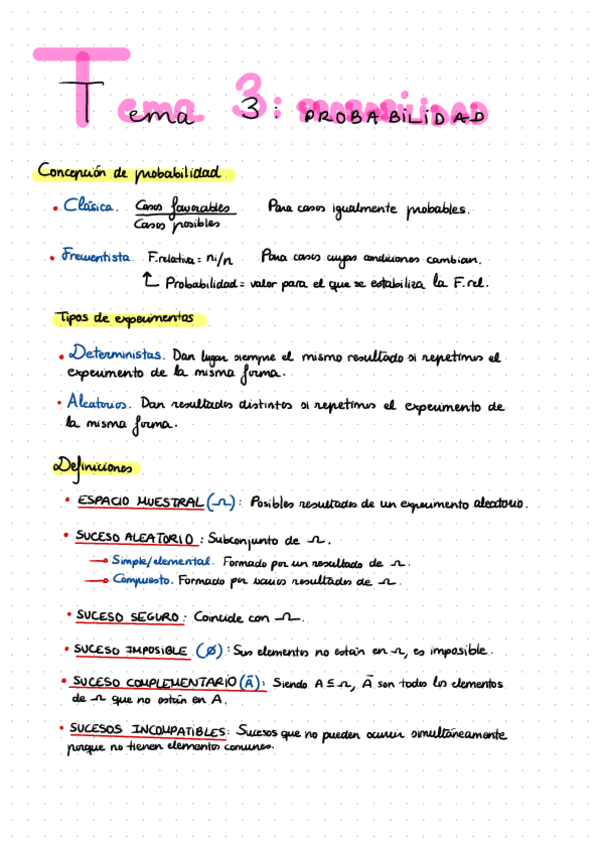 Tema 3: PROBABILIDAD
Concepción de probabilidad.
• Clásica. Casos favorables / Casos posibles Para casos igualmente probables.
• Frecuentista. F.relativa = ni/n Para casos cuyas condiciones cambian.
↑ Probabilidad = valor para el que se estabiliza la F.rel.
Tipos de experimentos
• Deterministas. Dan lugar siempre el mismo resultado si repetimos el
experimento de la misma forma.
• Aleatorios. Dan resultados distintos si repetimos el experimento de
la misma forma.
Definiciones
• ESPACIO MUESTRAL (Ω): Posibles resultados de un experimento aleatorio.
• SUCESO ALEATORIO: Subconjunto de Ω.
→ Simple/elemental. Formado por un resultado de Ω.
→ Compuesto. Formado por varios resultados de Ω.
• SUCESO SEGURO: Coincide con Ω.
• SUCESO IMPOSIBLE (Ø): Sus elementos no están en Ω, es imposible.
• SUCESO COMPLEMENTARIO (Ā): Siendo A ⊆ Ω, Ā son todos los elementos
de Ω que no están en A.
• SUCESOS INCOMPATIBLES: Sucesos que no pueden ocurrir simultáneamente
porque no tienen elementos comunes.